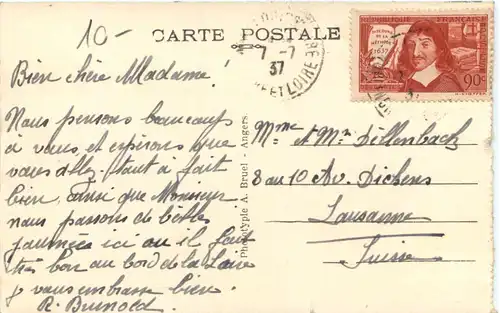 10-
CARTE POSTALE
7-7
37
ET LOIRE
RÉPUBLIQUE FRANÇAISE
DISCOURS
DE LA
MÉTHODE
1637
90c
Bien chère Madame!
Nous pensons beaucoup
à vous, et espérons que
vous allez tout à fait
bien, ainsi que Monsieur
nous passons de belles
journées ici ou il fait
très bon au bord de la Loire
je vous embrasse bien.
R. Brunold.
Phototypie A. Bruel - Angers
Mme et Mr Dellenbach
8 au 10 Av. Dickens
Lausanne
Suisse